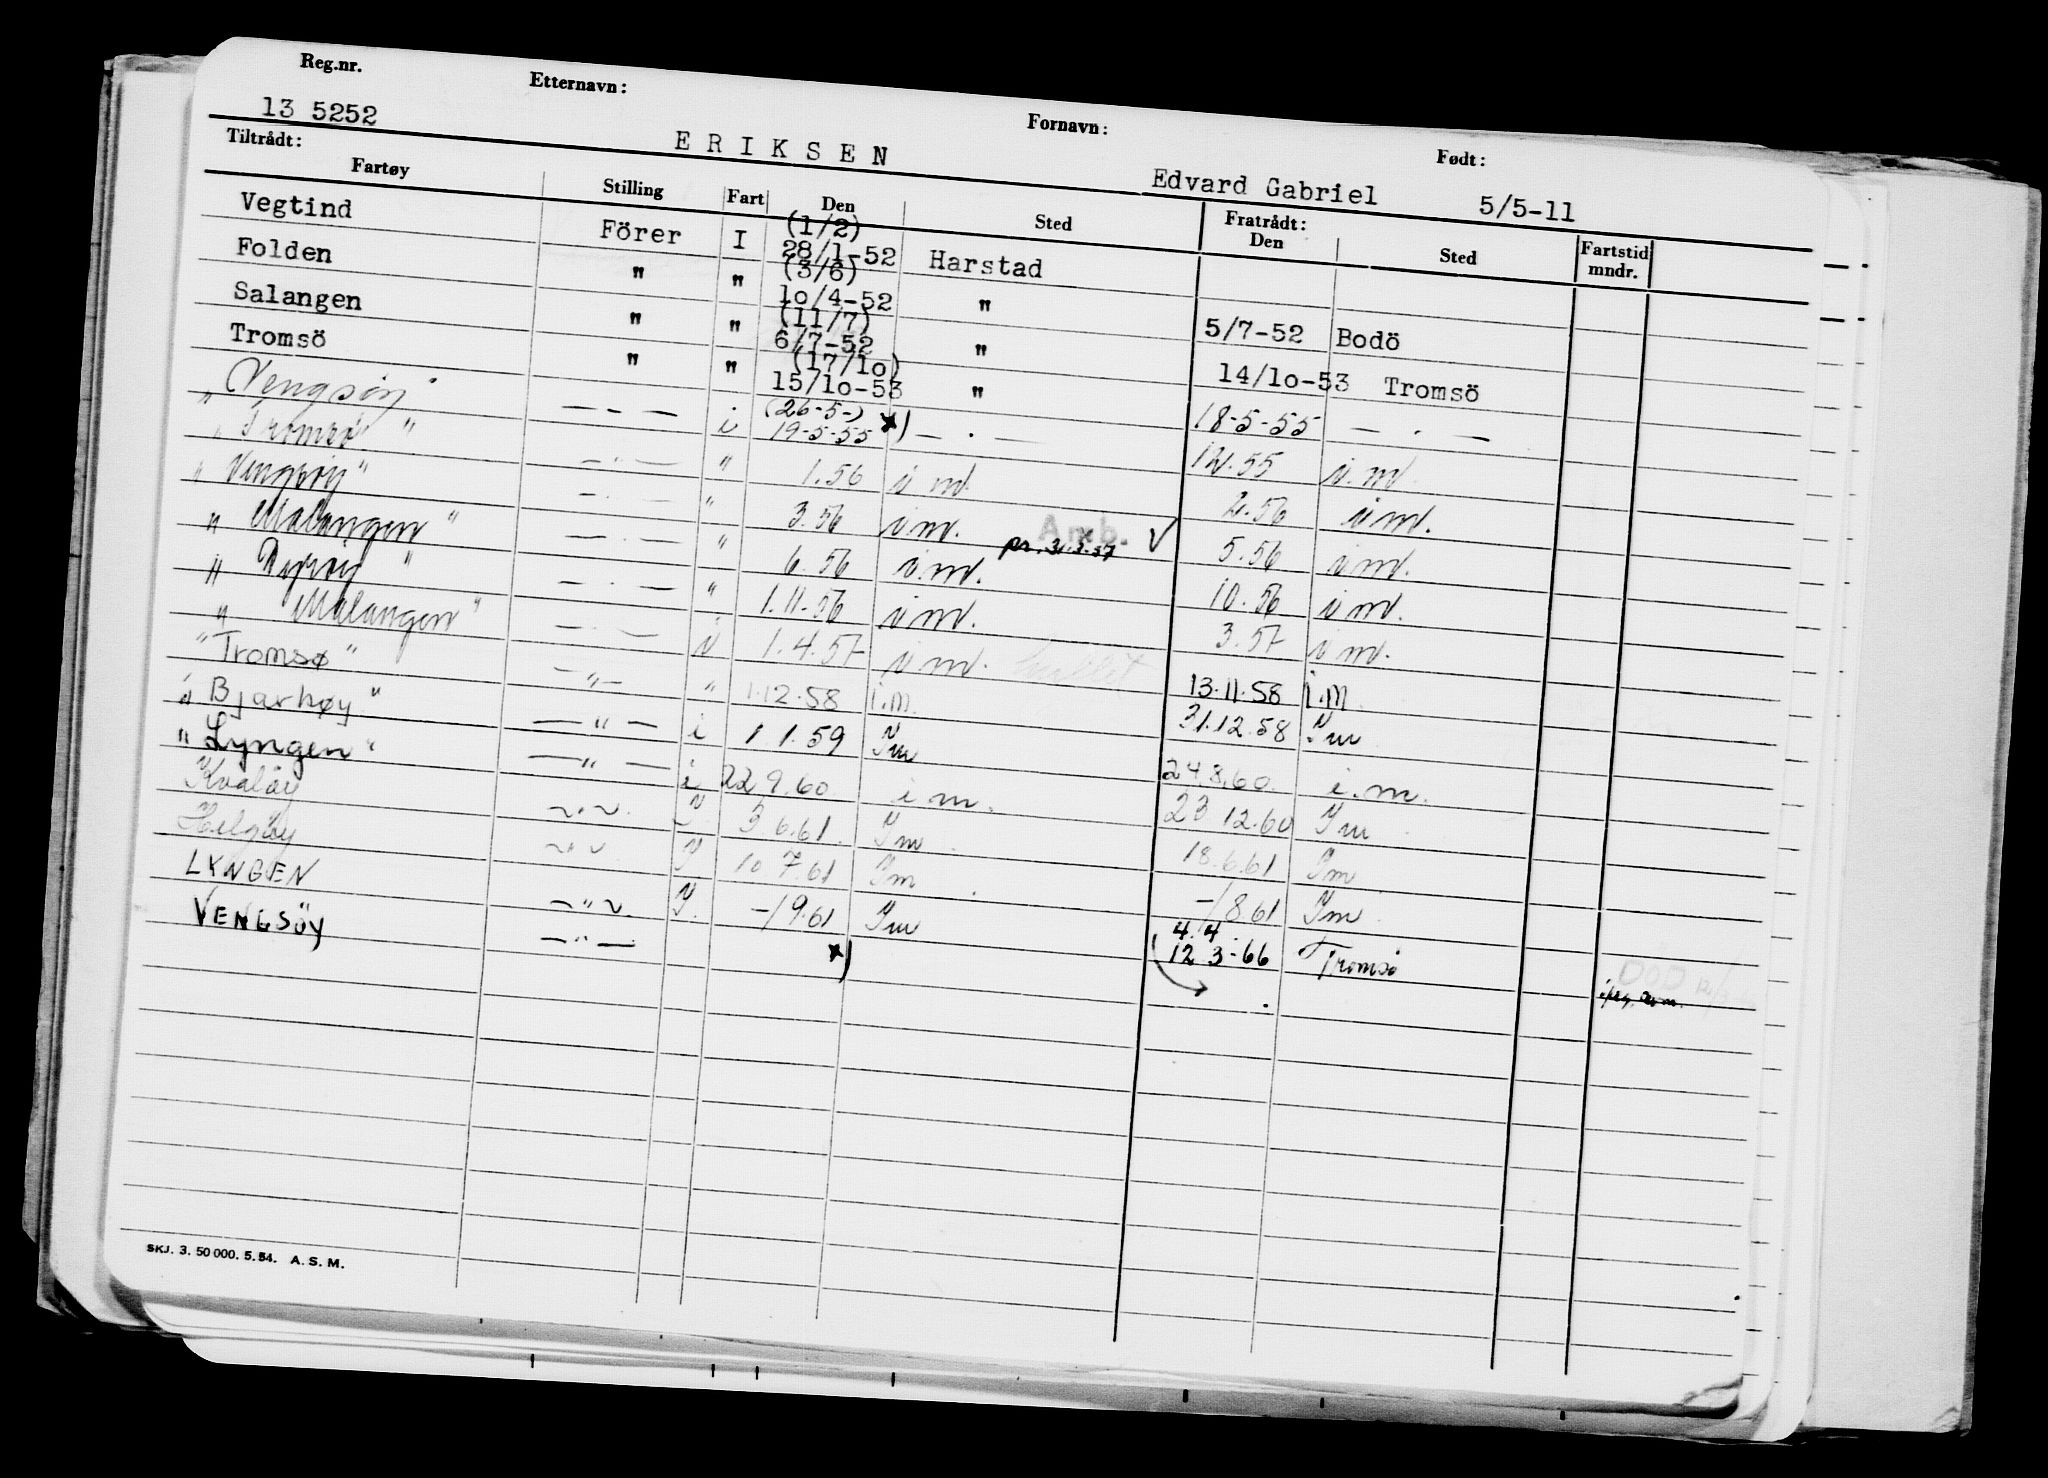 Reg.nr. Etternavn: Fornavn: Født:
13 5252 ERIKSEN Edvard Gabriel 5/5-11
Tiltrådt: Fratrådt:
Fartøy Stilling Fart Den Sted Den Sted Fartstid mndr.
Vegtind Förer I (1/2) 28/1-52 Harstad
Folden " " (3/6) 10/4-52 " 5/7-52 Bodö
Salangen " " (11/7) 6/7-52 " 14/10-53 Tromsö
Tromsö " " (17/10) 15/10-53 " 18-5-55 — . —
"Vengsöy" — - — i (26-5-) 19-5-55 *) — . — 12.55 i.m.
"Tromsø" — " — " 1.56 i m. 2.56 i m.
"Vengsøy" — . — " 3.56 i m. Amb. pr. 31.3.57 ✓ 5.56 i m.
"Malangen" — . — " 6.56 i m. 10.56 i m.
"Dyrøy" — . — " 1.11.56 i m. 3.57 i m.
"Malangen" — . — i 1.4.57 i m. 13.11.58 i.m.
"Tromsø" — " — " 1.12.58 i.m. 31.12.58 Im
"Bjarkøy" — " — i 1 1.59 Im 24.8.60 i.m.
"Lyngen" — " — i 22 9.60 i m. 23 12.60 Im
Kvaløy — " — I 3 6.61. Im 18.6.61 Im
Helgøy — " — I 10 7.61 Im -/8.61 Im
LYNGEN — " — I. -/9.61 Im 4.4. 12 3-66 Tromsø
VENGSÖY — " — *) DØD
SKJ. 3. 50 000. 5. 54. A. S. M.